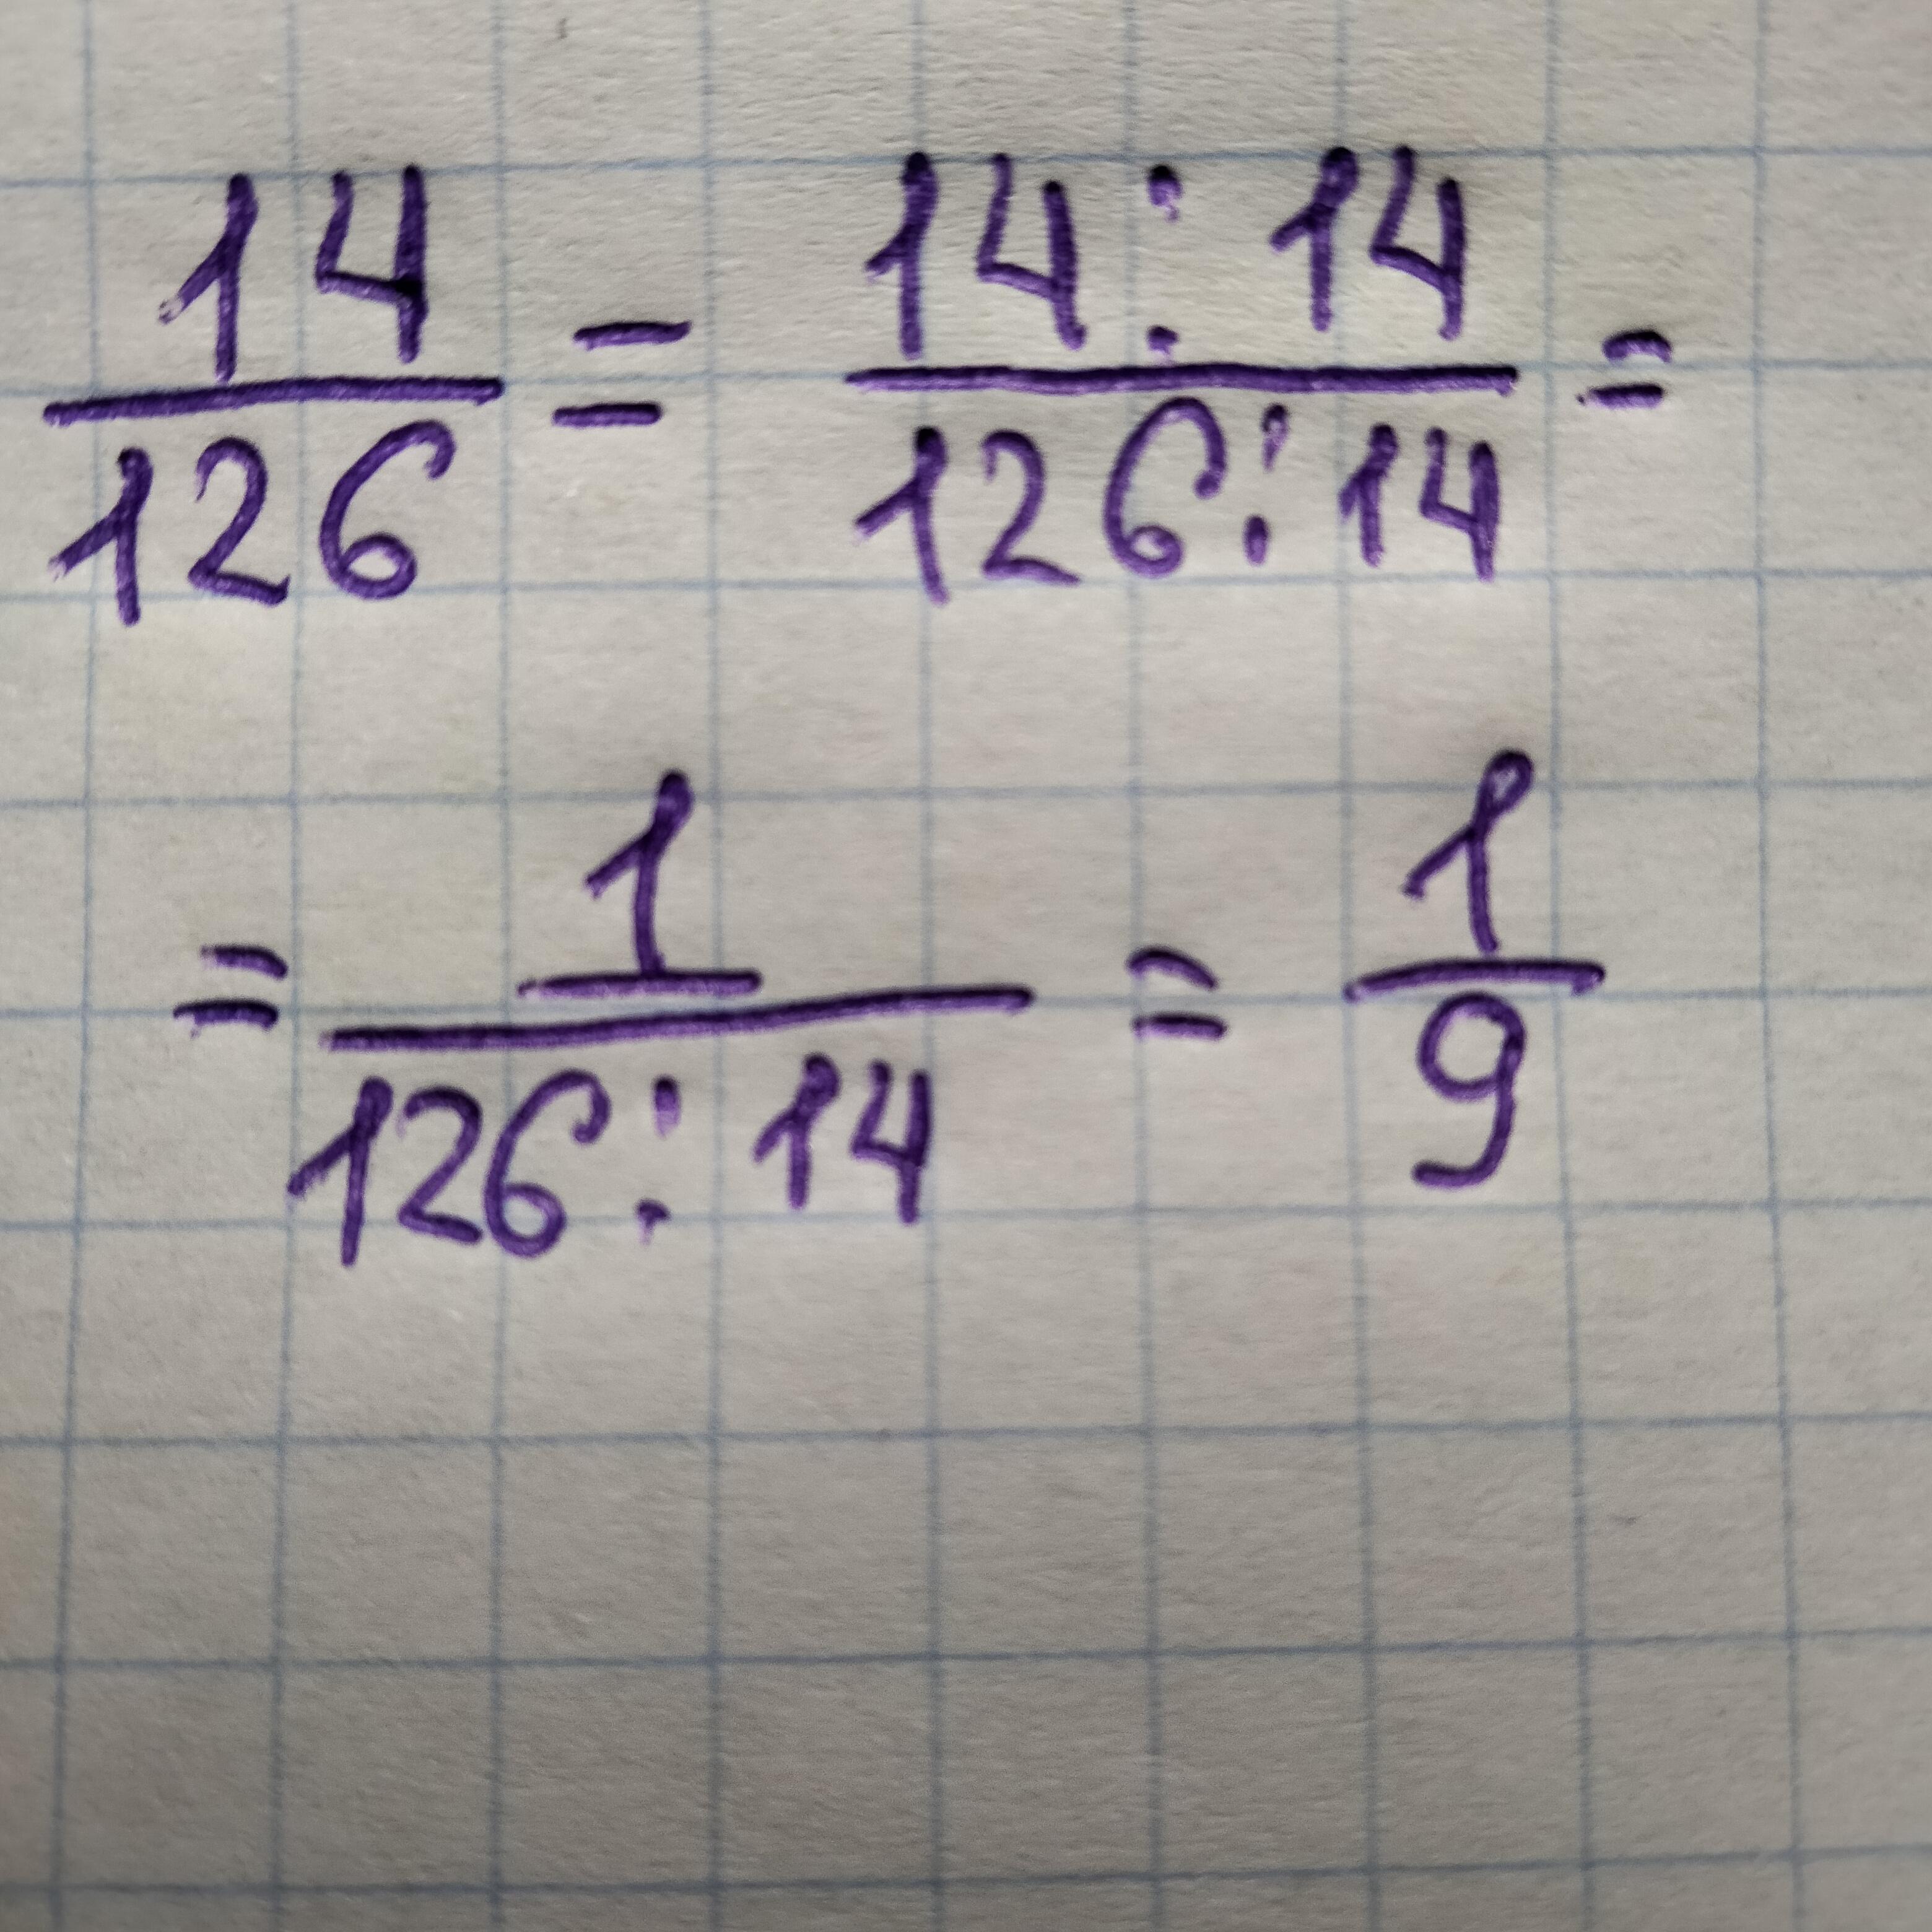 14/126 = 14:14/126:14 =
= 1/126:14 = 1/9